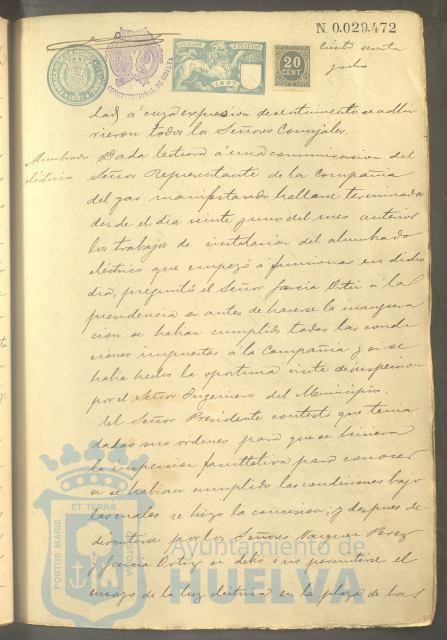 N. 0.029.472
ciento sesenta
y ocho
20
CENT
1897
CONSTITUCIONAL DE HUELVA
dad á cuya expresion de sentimiento se adhi
rieron todos los Señores Concejales.
Alumbrado
eléctrico
Dada lectura á una comunicacion del
Señor Representante de la Compañia
del gas manifestando hallarse terminados
desde el dia veinte y uno del mes anterior
los trabajos de instalacion del alumbrado
eléctrico que empezó á funcionar en dicho
dia, preguntó el Señor Garcia Ortiz á la
presidencia si antes de hacerse la inaugura
cion se habian cumplido todas las condi
ciones impuestas á la Compañia y si se
habia hecho la oportuna visita de inspeccion
por el Señor Ingeniero del Municipio.
El Señor Presidente contestó que tenia
dadas sus ordenes para que se hiciera
la inspeccion facultativa para conocer
si se habian cumplido las condiciones bajo
las cuales se hizo la concesion; y despues de
discutirse por los Señores Vazquez Perez
y Garcia Ortiz si debió ó no permitirse el
ensayo de la luz eléctrica en la plaza de las
PORTUS MARIS
ET TERRÆ
Ayuntamiento de
HUELVA